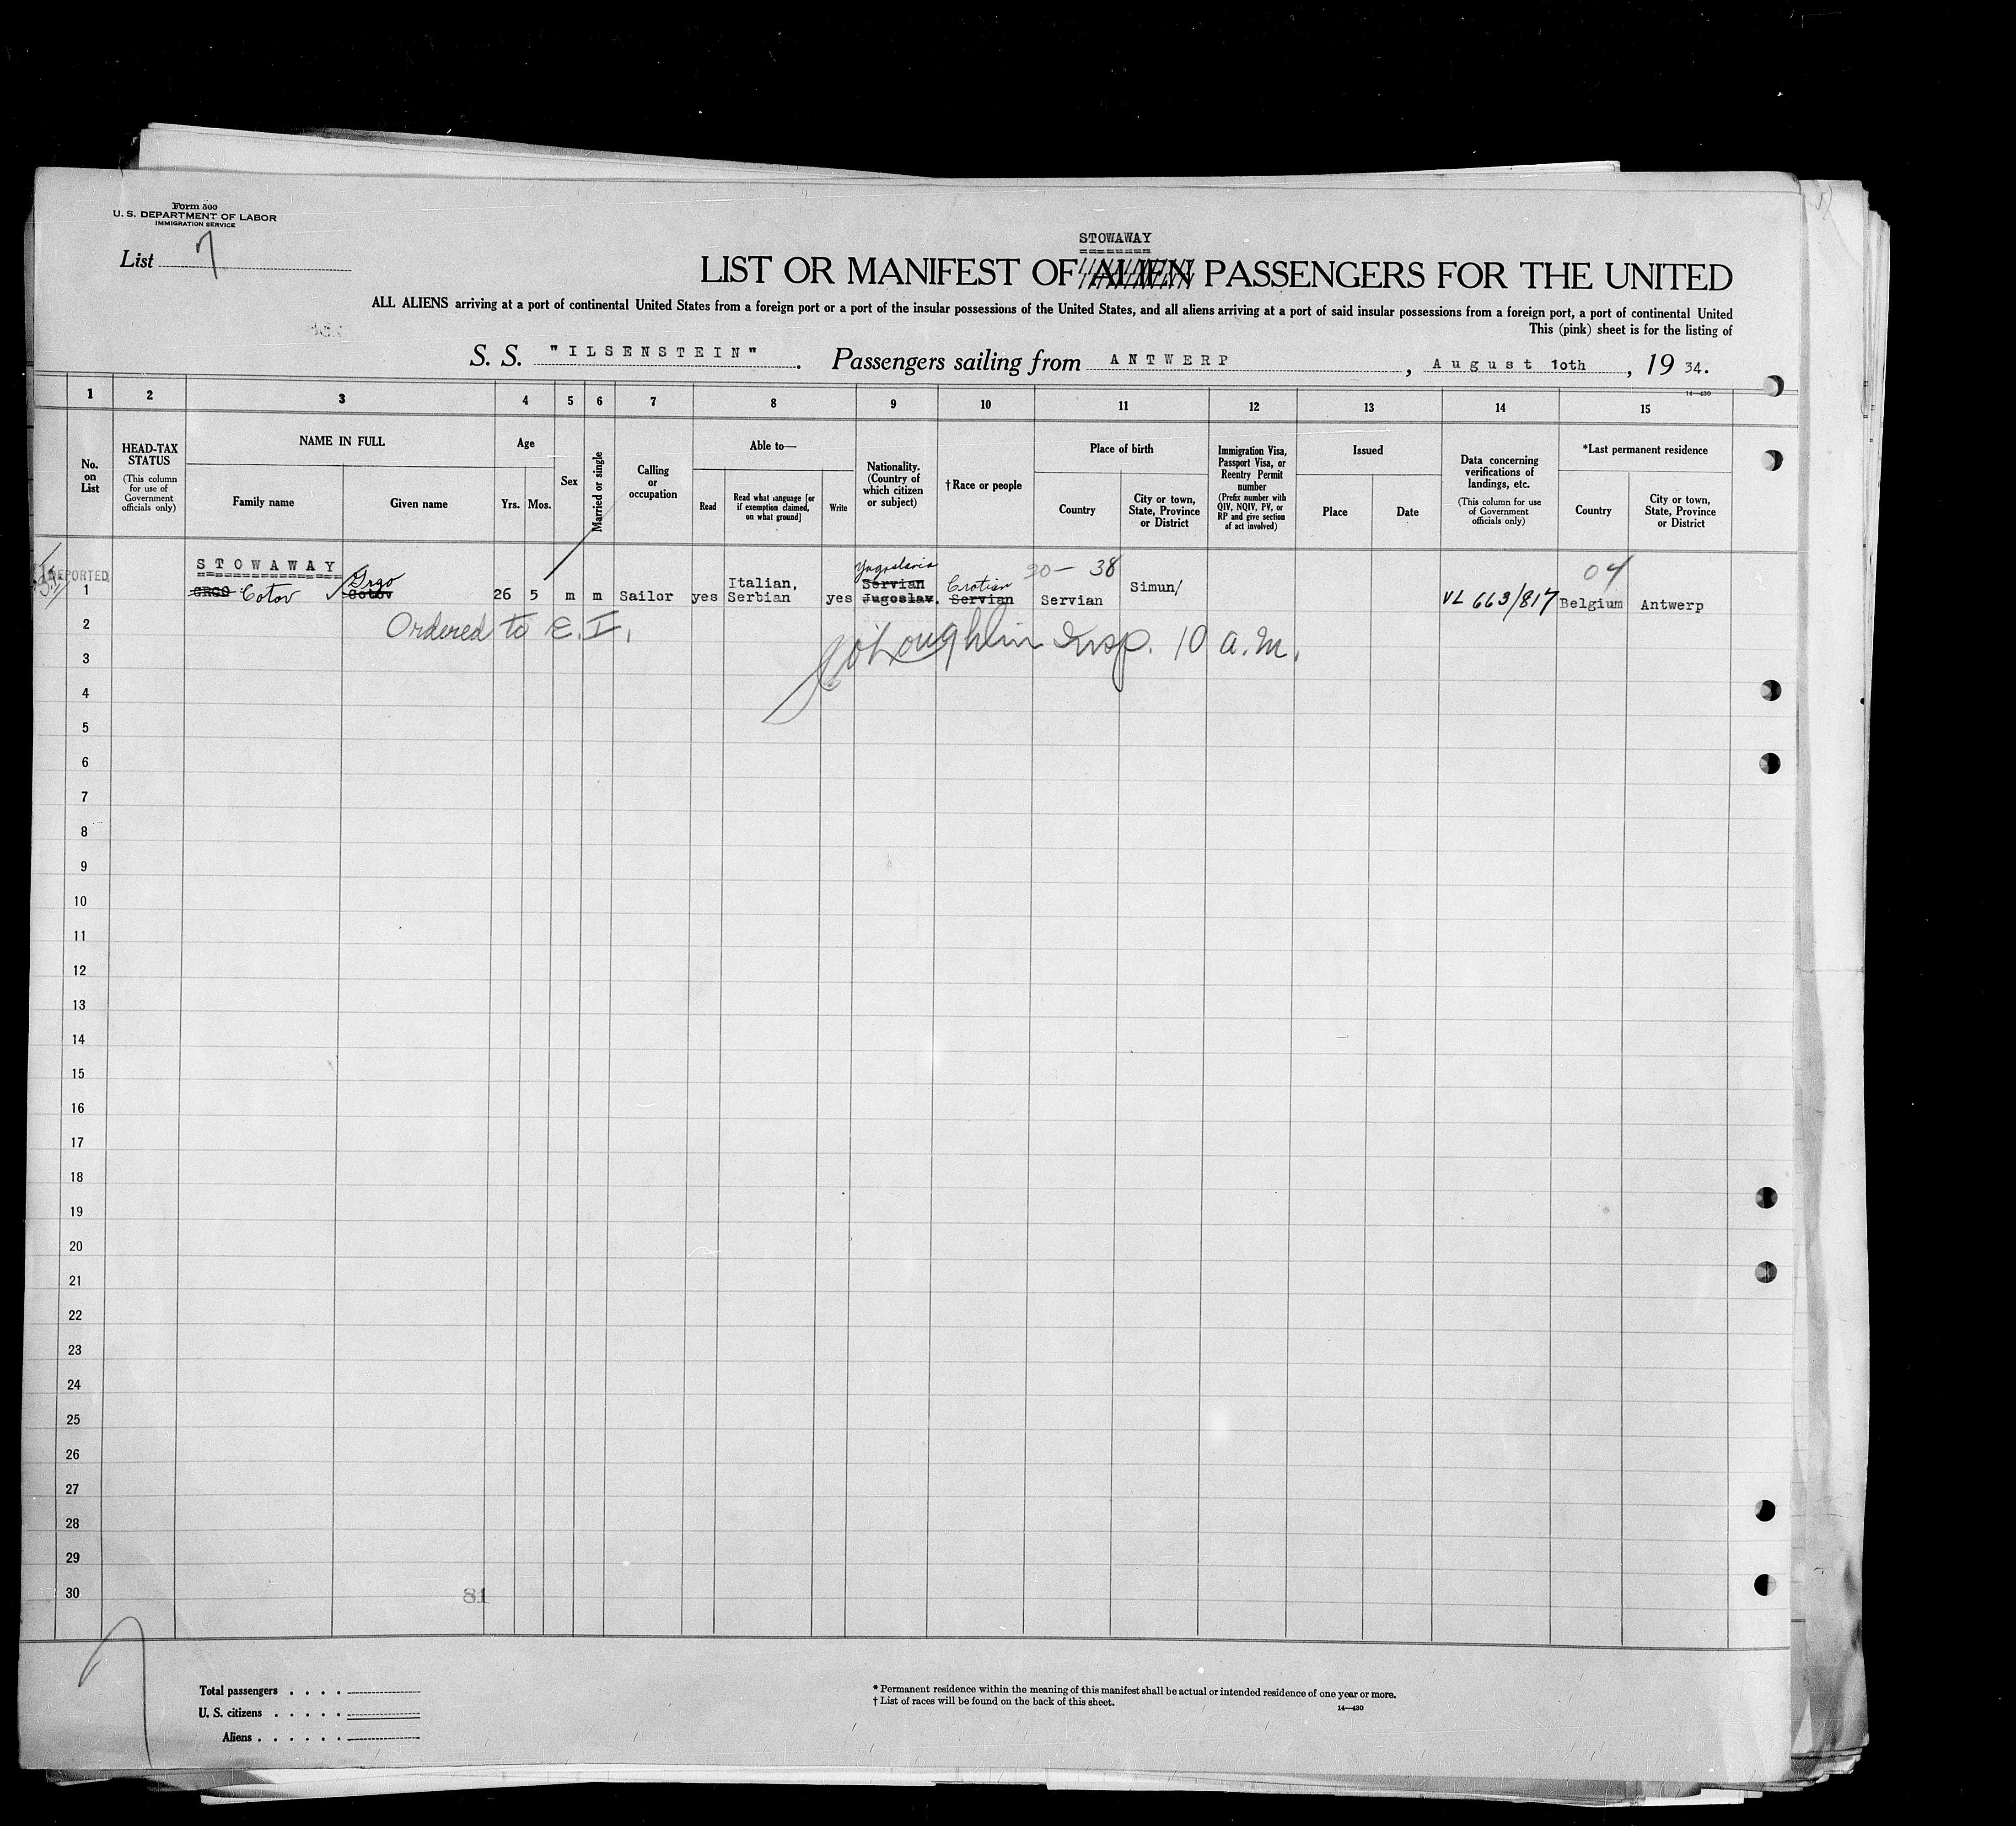 Form 500
U. S. DEPARTMENT OF LABOR
IMMIGRATION SERVICE
List 7
STOWAWAY
LIST OR MANIFEST OF ALIEN PASSENGERS FOR THE UNITED
ALL ALIENS arriving at a port of continental United States from a foreign port or a port of the insular possessions of the United States, and all aliens arriving at a port of said insular possessions from a foreign port, a port of continental United
This (pink) sheet is for the listing of
S. S. "ILSENSTEIN". Passengers sailing from ANTWERP, August 10th, 19 34.
14—430
1 2 3 4 5 6 7 8 9 10 11 12 13 14 15
No. on List
HEAD-TAX STATUS
(This column for use of Government officials only)
NAME IN FULL
Family name
Given name
Age
Yrs. Mos.
Sex
Married or single
Calling or occupation
Able to—
Read
Read what language [or if exemption claimed, on what ground]
Write
Nationality. (Country of which citizen or subject)
† Race or people
Place of birth
Country
City or town, State, Province or District
Immigration Visa, Passport Visa, or Reentry Permit number
(Prefix number with QIV, NQIV, PV, or RP and give section of act involved)
Issued
Place
Date
Data concerning verifications of landings, etc.
(This column for use of Government officials only)
*Last permanent residence
Country
City or town, State, Province or District
DEPORTED
STOWAWAY
Grgo
Yugoslavia
20— 38
04
Italian,
Servian
Crotian
Simun/
1 GRGO Cotov ✓ Cotov 26 5 m m Sailor yes Serbian yes Jugoslav. Servian Servian VL 663/817 Belgium Antwerp
2 Ordered to E. I.
O'Loughlin Insp. 10 a.m.
3
4
5
6
7
8
9
10
11
12
13
14
15
16
17
18
19
20
21
22
23
24
25
26
27
28
29
30
81
7
Total passengers . . . .
U. S. citizens . . . . .
Aliens . . . . . .
* Permanent residence within the meaning of this manifest shall be actual or intended residence of one year or more.
† List of races will be found on the back of this sheet.
14—430